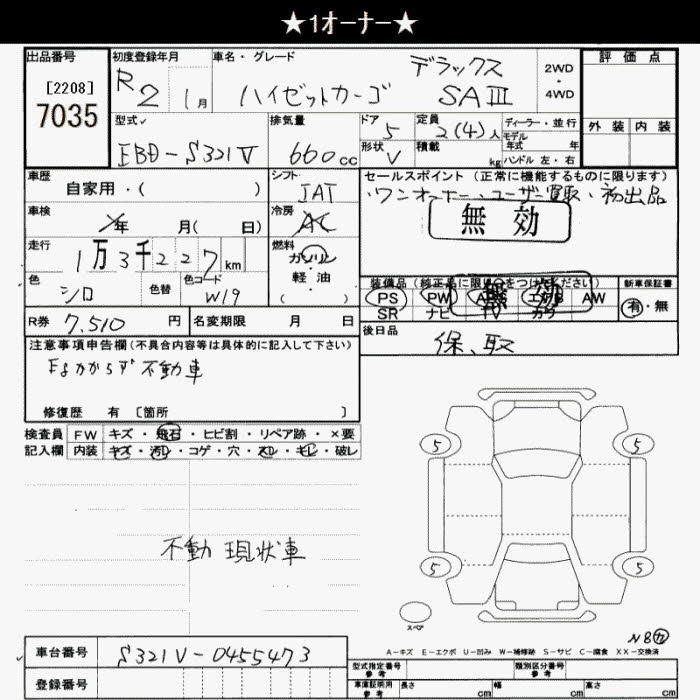 ★1オーナー★
出品番号 初度登録年月 車名・グレード 評価点
[2208] R2 1月 ハイゼットカーゴ デラックス SAⅢ 2WD・4WD
7035
型式 排気量 ドア 定員 ディーラー・並行 外装 内装
EBD-S321V 660cc 5 2(4)人 モデル年式 年
形状 V 積載 kg ハンドル 左・右
車歴 シフト セールスポイント(正常に機能するものに限ります)
自家用・( ) IAT ・ワンオーナー、ユーザー買取・初出品
車検 冷房 無効
年 月( 日) AC
走行 燃料
1万3千227km ガソリン・軽油
( )
色 色替 色コード
シロ W19
装備品(純正品に限り○をつけてください) 新車保証書
PS PW ABS エアB AW 有・無
SR ナビ TV カワ
無効
R券 7,510円 名変期限 月 日 後日品
保、取
注意事項申告欄(不具合内容等は具体的に記入して下さい)
Egかからず 不動車
修復歴 有 [箇所 ]
検査員 FW キズ・飛石・ヒビ割・リペア跡・×要
記入欄 内装 キズ・汚レ・コゲ・穴・スレ・キレ・破レ
5 5
不動 現状車
5 5
スペア
N8㊈
A-キズ E-エクボ U-凹み W-補修跡 S-サビ C-腐食 XX-交換済
車台番号 S321V-0455473
型式指定番号 参考 類別区分番号 参考
登録番号 車庫証明用 参考 長さ cm 幅 cm 高さ cm